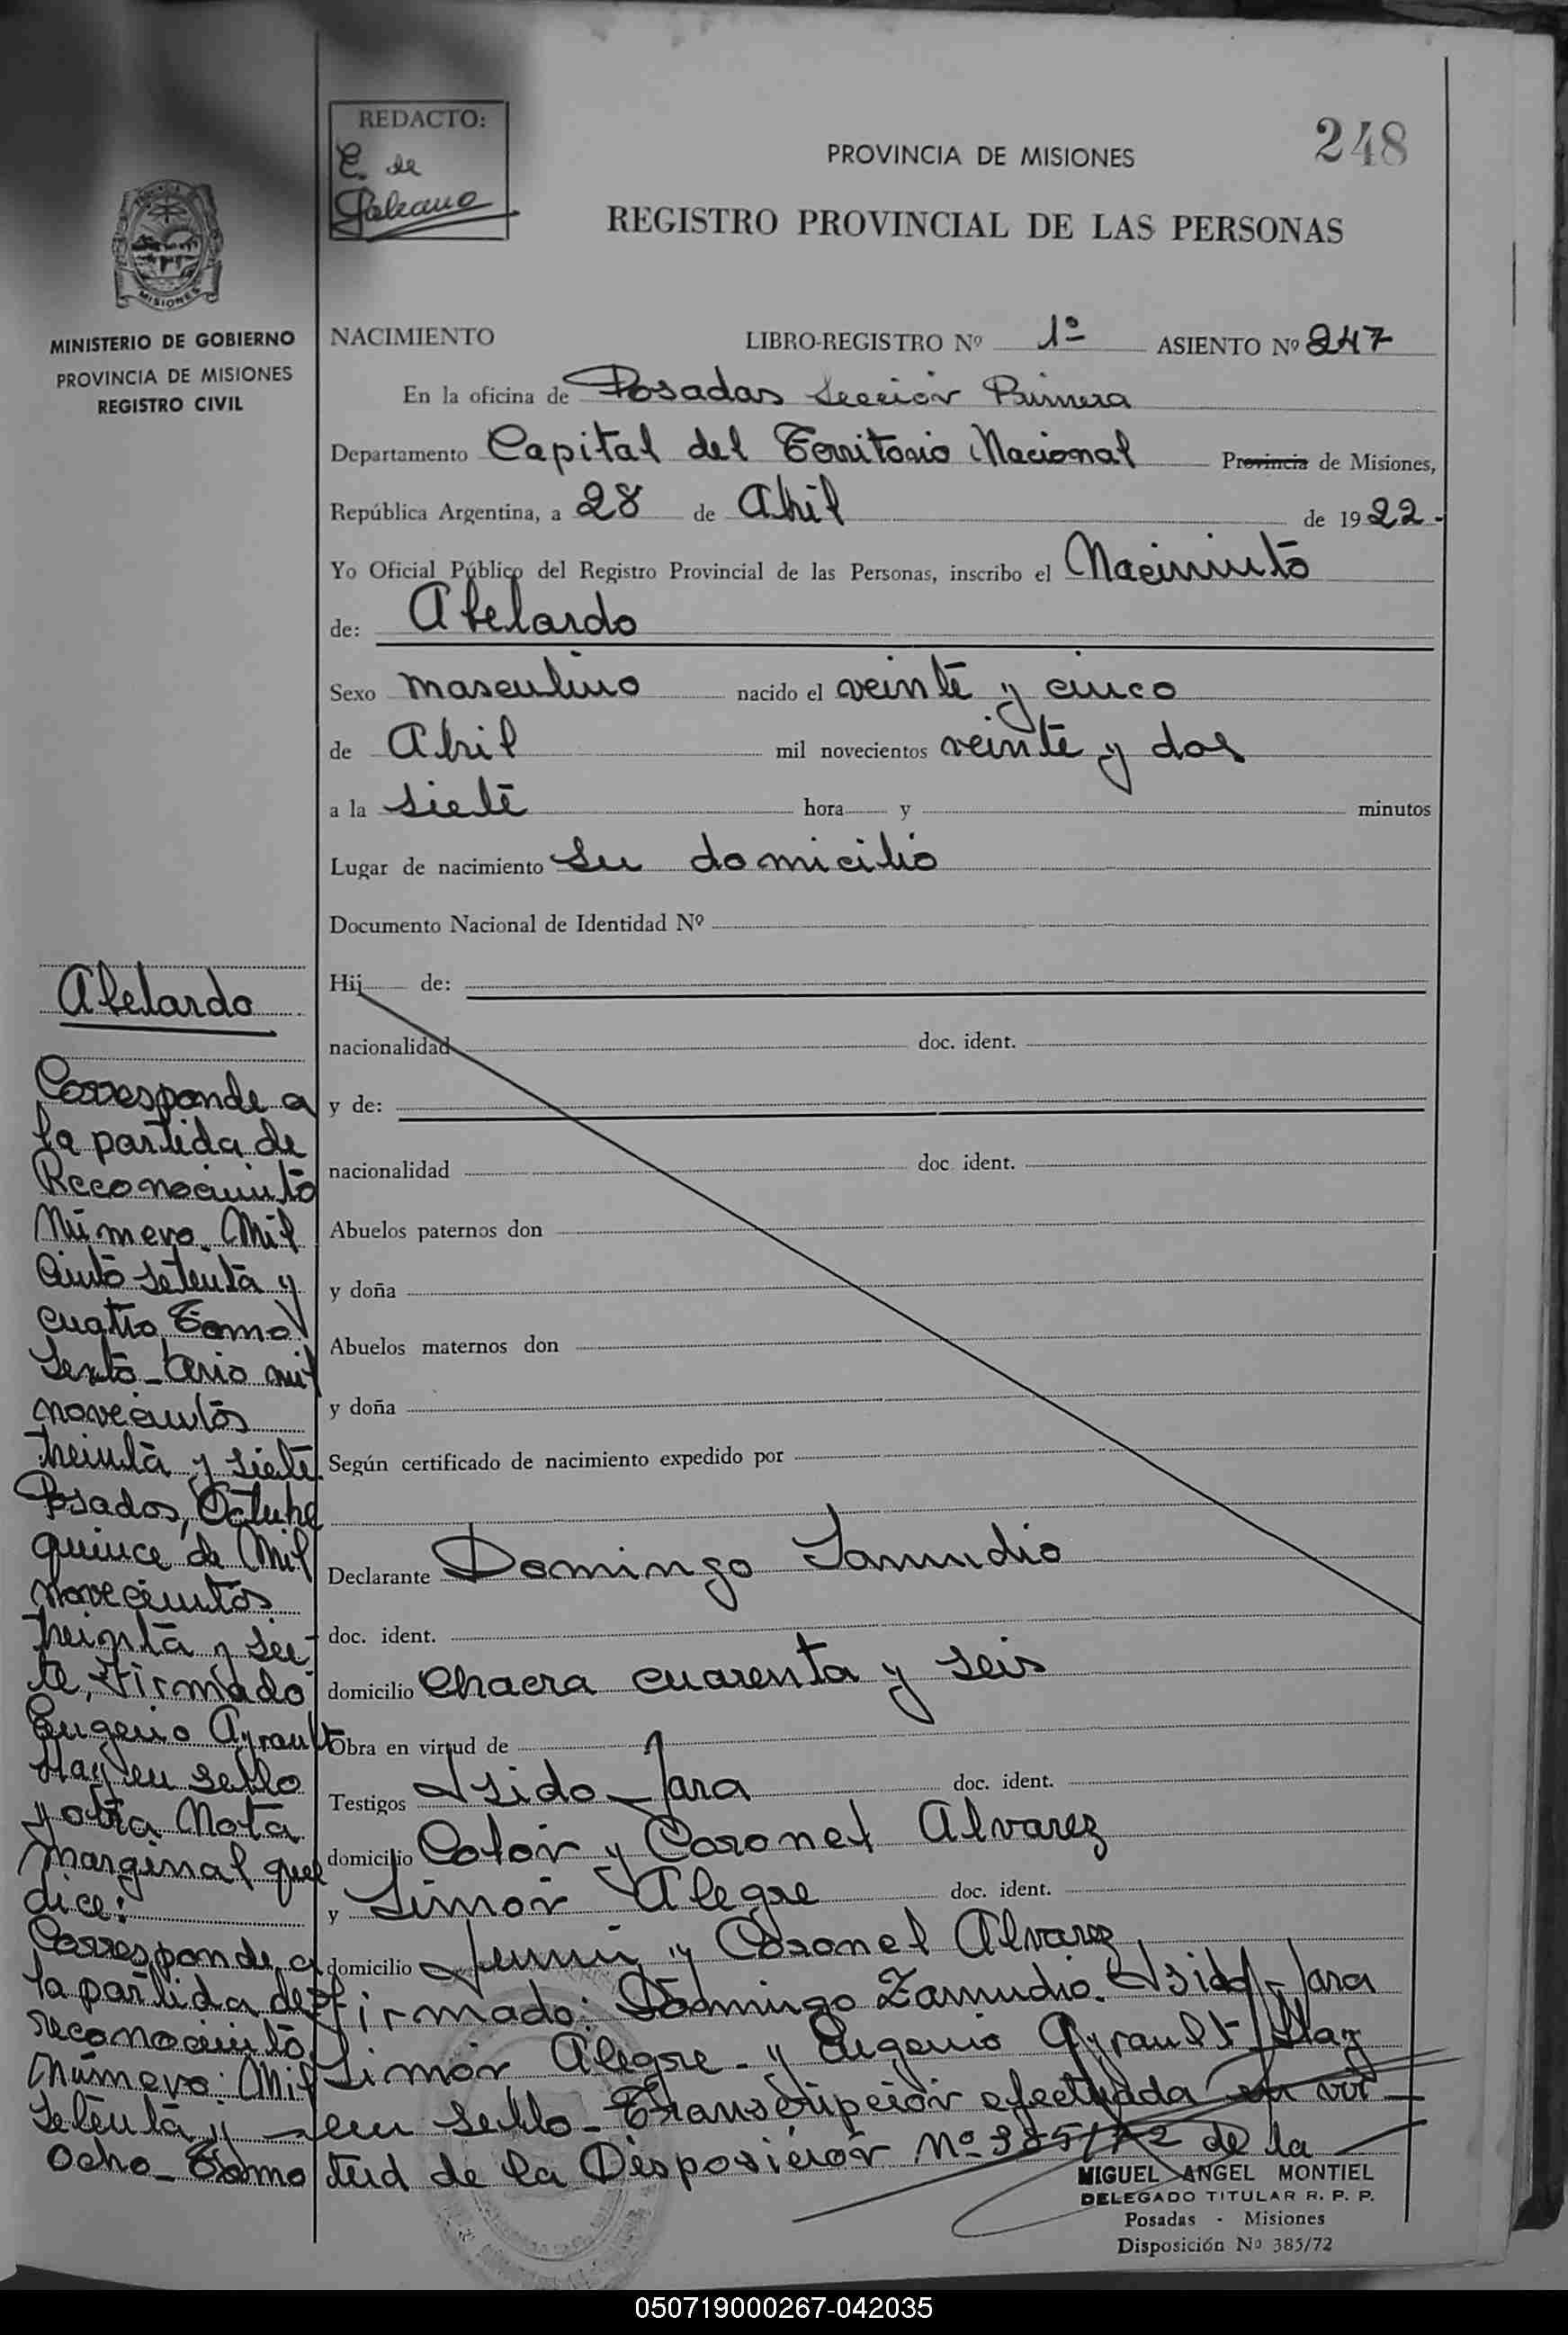 REDACTO:
E. de
Galeano
248
PROVINCIA DE MISIONES
REGISTRO PROVINCIAL DE LAS PERSONAS
MISIONES
MINISTERIO DE GOBIERNO
PROVINCIA DE MISIONES
REGISTRO CIVIL
NACIMIENTO LIBRO-REGISTRO Nº 1º ASIENTO Nº 247
En la oficina de Posadas Sección Primera
Departamento Capital del Territorio Nacional Provincia de Misiones,
República Argentina, a 28 de Abril de 1922.
Yo Oficial Público del Registro Provincial de las Personas, inscribo el Nacimiento
de: Abelardo
Sexo masculino nacido el veinte y cinco
de Abril mil novecientos veinte y dos
a la siete hora y minutos
Lugar de nacimiento Su domicilio
Documento Nacional de Identidad Nº
Hij de:
nacionalidad doc. ident.
y de:
nacionalidad doc. ident.
Abuelos paternos don
y doña
Abuelos maternos don
y doña
Según certificado de nacimiento expedido por
Declarante Domingo Samudio
doc. ident.
domicilio Chacra cuarenta y seis
Obra en virtud de
Testigos Isido Jara doc. ident.
domicilio Colón y Coronel Alvarez
y Simón Alegre doc. ident.
domicilio Junín y Coronel Alvarez
firmado: Domingo Zamudio. Isido Jara
Simón Alegre - y Eugenio Ayrault Hay
un sello - Transcripción efectuada en vir
tud de la Disposición Nº 385/72 de la
MIGUEL ANGEL MONTIEL
DELEGADO TITULAR R. P. P.
Posadas - Misiones
Disposición Nº 385/72
Abelardo
Corresponde a
la partida de
Reconocimiento
Número Mil
ciento setenta y
cuatro Tomo
Sexto - Año mil
novecientos
treinta y siete.
Posadas, Octubre
quince de Mil
novecientos
treinta y sie-
te, Firmado
Eugenio Ayrault
Hay un sello
y otra Nota
marginal que
dice:
Corresponde a
la partida de
reconocimiento
Número: Mil
setenta y
ocho - Tomo
050719000267-042035